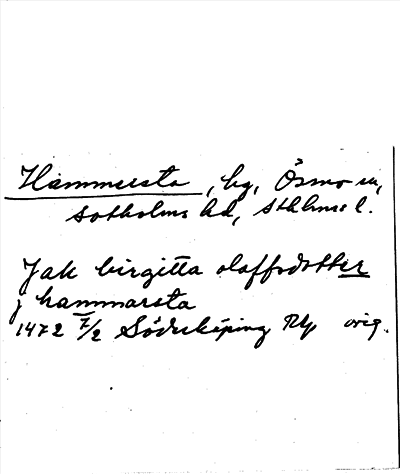 Hammersta, hg, Ösmo sn,
Sotholms hd, Sthlms l.
Jak birgitta olaffsdotter
j hammarsta
1472 7/2 Söderköping Rp orig.